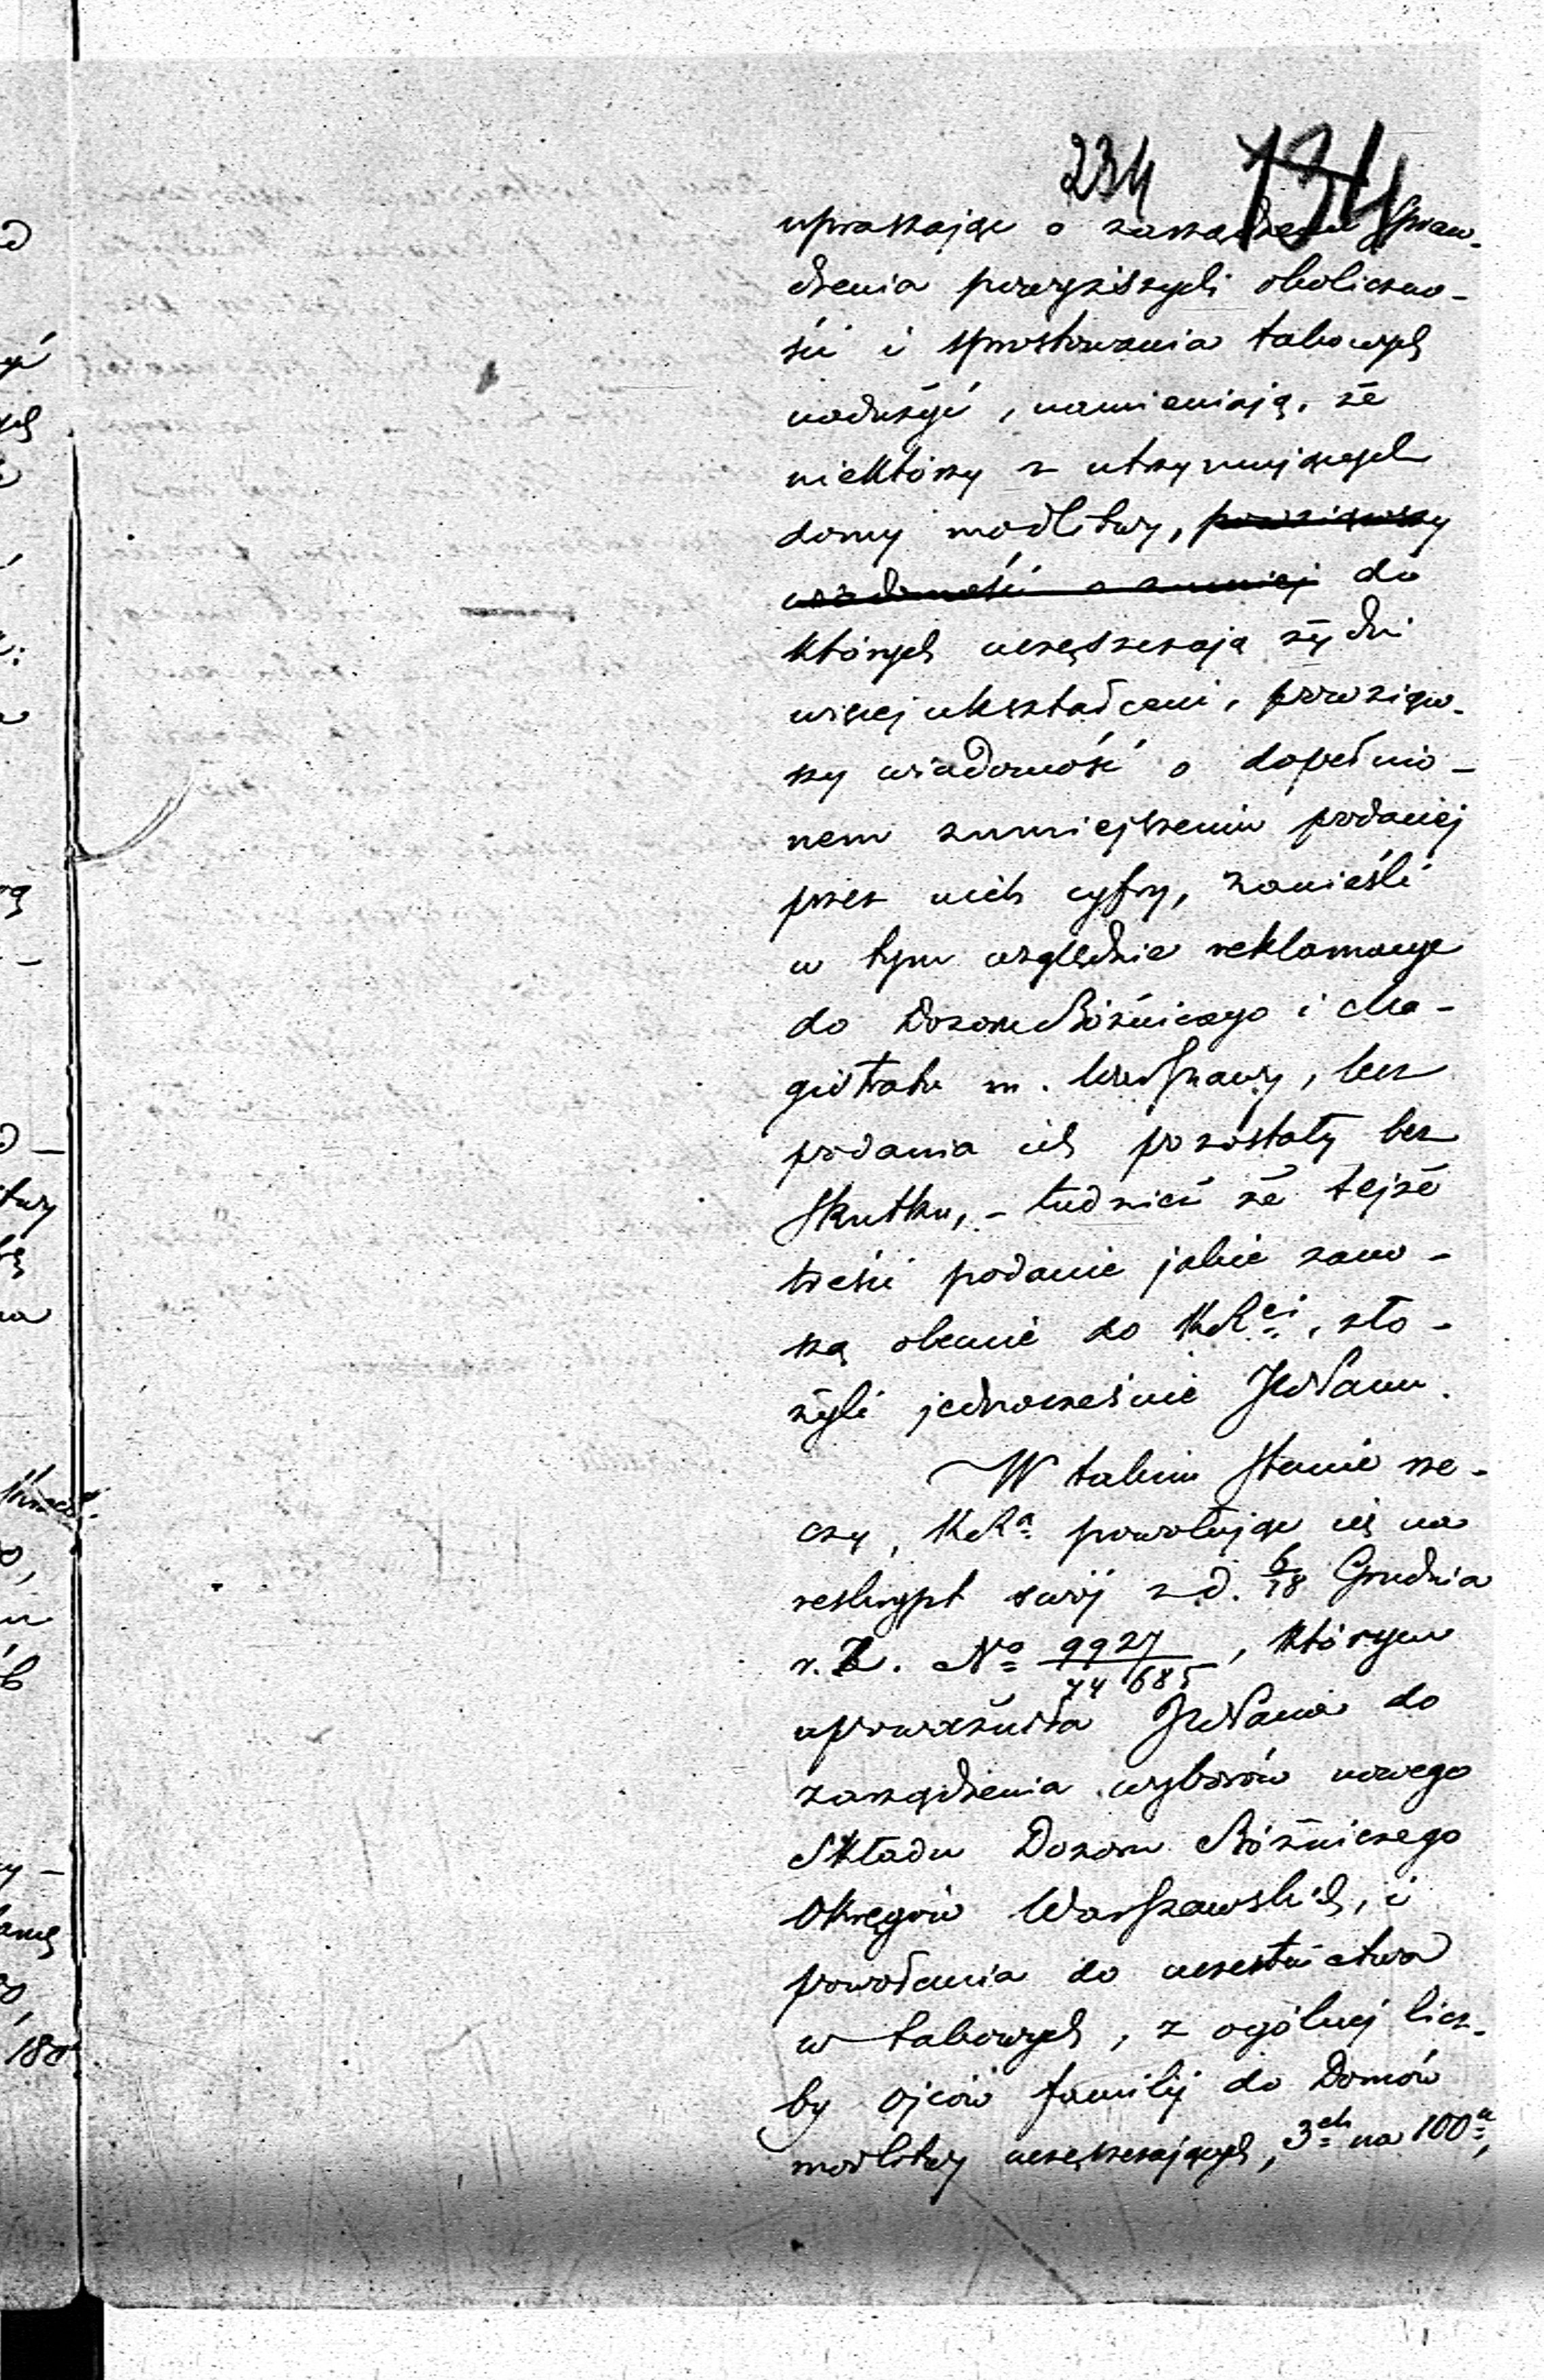 234 134
upraszając o zarządzenie spraw-
dzenia powyższych okoliczno-
ści i sprostowania takowych
nadużyć, namieniają, że
niektórzy z utrzymujących
domy modlitwy, powziąwszy
wiadomość o zmniej do
których uczęszczają żydzi
więcej ukształceni, powziąw-
szy wiadomość o dopełnio-
nem zmniejszeniu podanej
przez nich cyfry, zanieśli
w tym względzie reklamacye
do Dozoru Bóźniczego i Ma-
gistratu m. Warszawy, lecz
podania ich pozostały bez
skutku, – tudzież że tejże
treści podanie jakie zano-
szą obecnie do KRei, zło-
żyli jednocześnie JWPanu.
W takim stanie rze-
czy, KRa powołując się na
reskrypt swój z d. 6/18 Grudnia
r. z. No 9927/74685, którym
upoważniła JWPana do
zarządzenia wyborów nowego
Składu Dozoru Bóźniczego
Okręgów Warszawskich, i
powołania do uczestnictwa
w takowych, z ogólnej licz-
by ojców familij do Domów
modlitwy uczęszczających, 3ch na 100a,